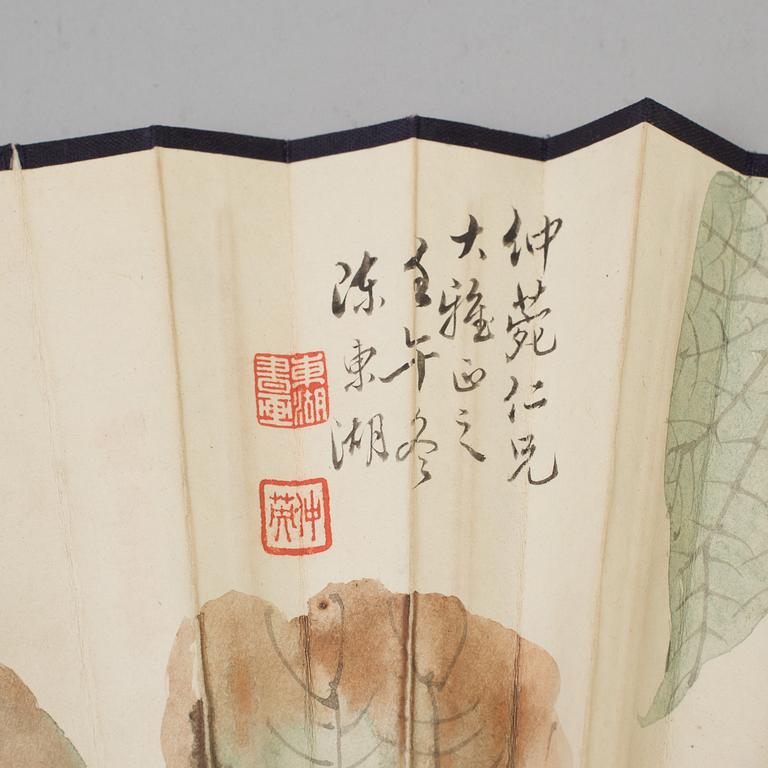 仲菀仁兄
大雅正之
壬午冬
陳東湖
東湖書画
仲英